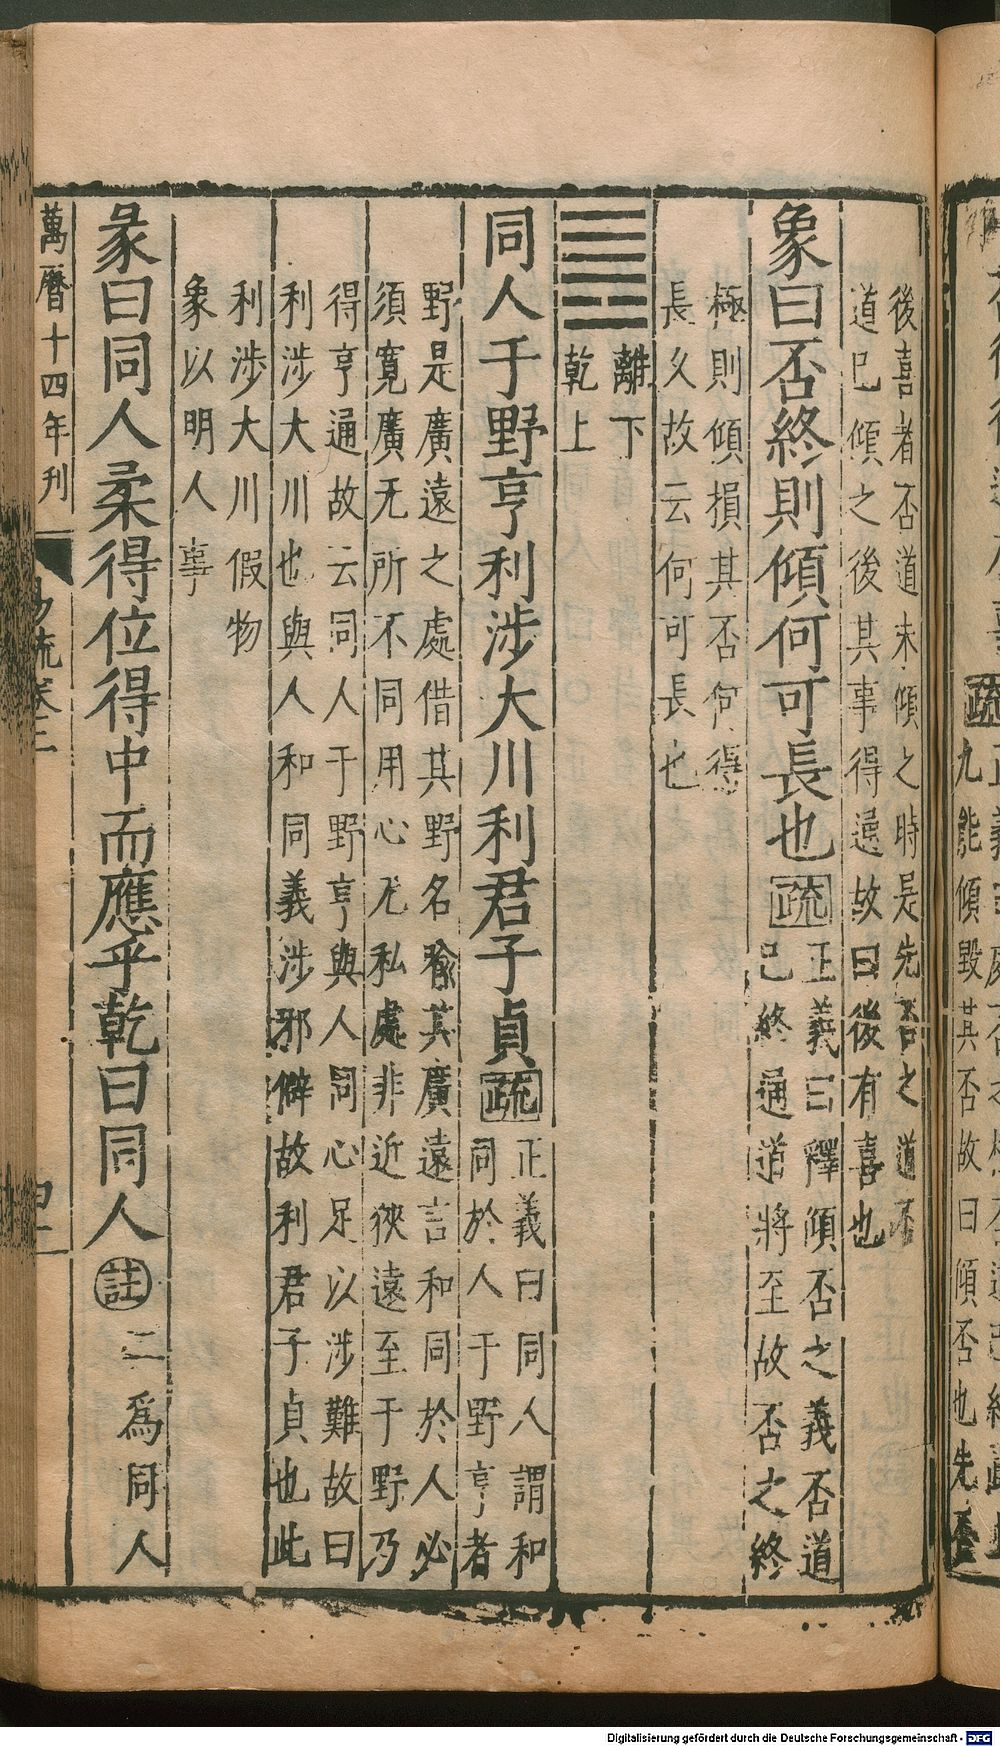 後喜者否道未傾之時是先否之道不
道已傾之後其事得通故曰後有喜也
象曰否終則傾何可長也疏
正義曰釋傾否之義否道
已終通道將至故否之終
極則傾損其否何得
長久故云何可長也
離下
乾上
同人于野亨利涉大川利君子貞疏
正義曰同人謂和
同於人于野亨者
野是廣遠之處借其野名喻其廣遠言和同於人必
須寬廣无所不同用心无私處非近狹遠至于野乃
得亨通故云同人于野亨與人同心足以涉難故曰
利涉大川也與人和同義涉邪僻故利君子貞也此
利涉大川假物
象以明人事
彖曰同人柔得位得中而應乎乾曰同人註
二爲同人
萬曆十四年刊
易疏卷三
Digitalisierung gefördert durch die Deutsche Forschungsgemeinschaft - DFG